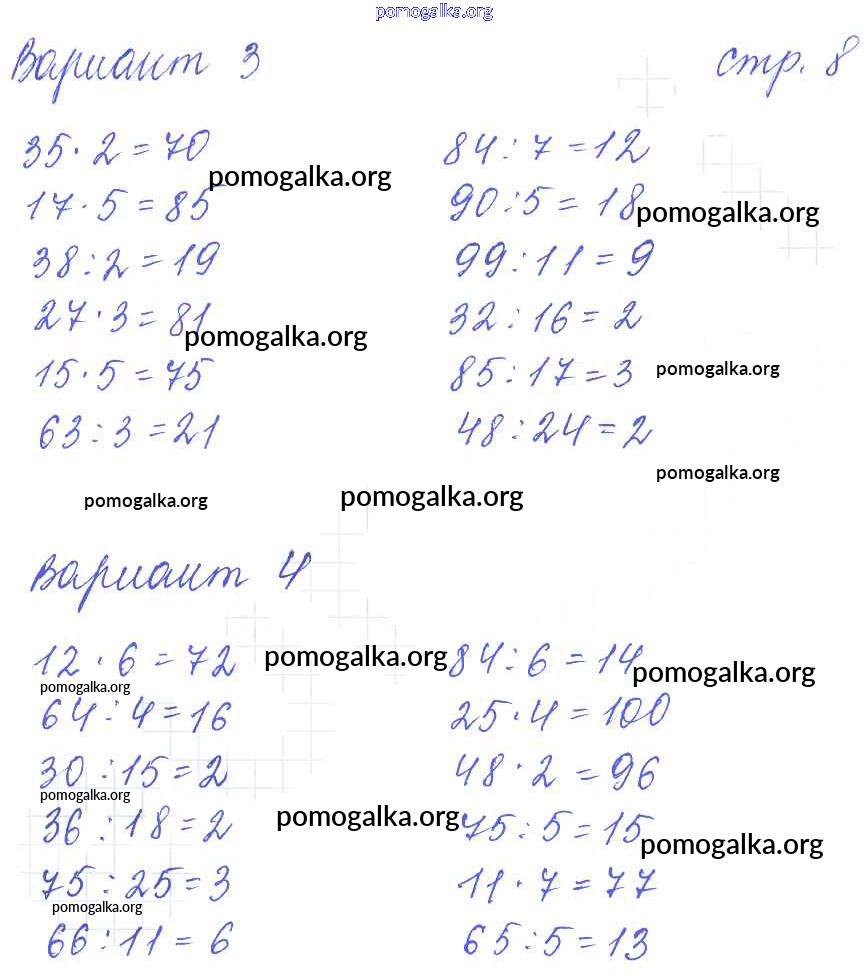 pomogalka.org
Вариант 3 стр. 8
35 · 2 = 70 84 : 7 = 12
pomogalka.org
17 · 5 = 85 90 : 5 = 18 pomogalka.org
38 : 2 = 19 99 : 11 = 9
27 · 3 = 81 32 : 16 = 2
pomogalka.org
15 · 5 = 75 85 : 17 = 3 pomogalka.org
63 : 3 = 21 48 : 24 = 2
pomogalka.org
pomogalka.org pomogalka.org
Вариант 4
12 · 6 = 72 pomogalka.org 84 : 6 = 14 pomogalka.org
pomogalka.org
64 : 4 = 16 25 · 4 = 100
30 : 15 = 2 48 · 2 = 96
pomogalka.org
36 : 18 = 2 pomogalka.org 75 : 5 = 15 pomogalka.org
75 : 25 = 3 11 · 7 = 77
pomogalka.org
66 : 11 = 6 65 : 5 = 13